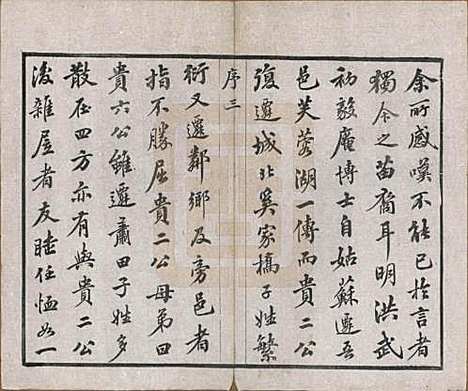 余所感嘆不能已於言者
獨今之苗裔耳明洪武
初毅庵博士自姑蘇遷吾
邑芙蓉湖一傳而貴二公
復遷城北奚家橋子姓繁
序三
衍又遷鄰鄉及旁邑者
指不勝屈貴二公母弟四
貴六公雖遷蕭田子姓多
散在四方亦有與貴二公
後雜居者友睦任恤如一